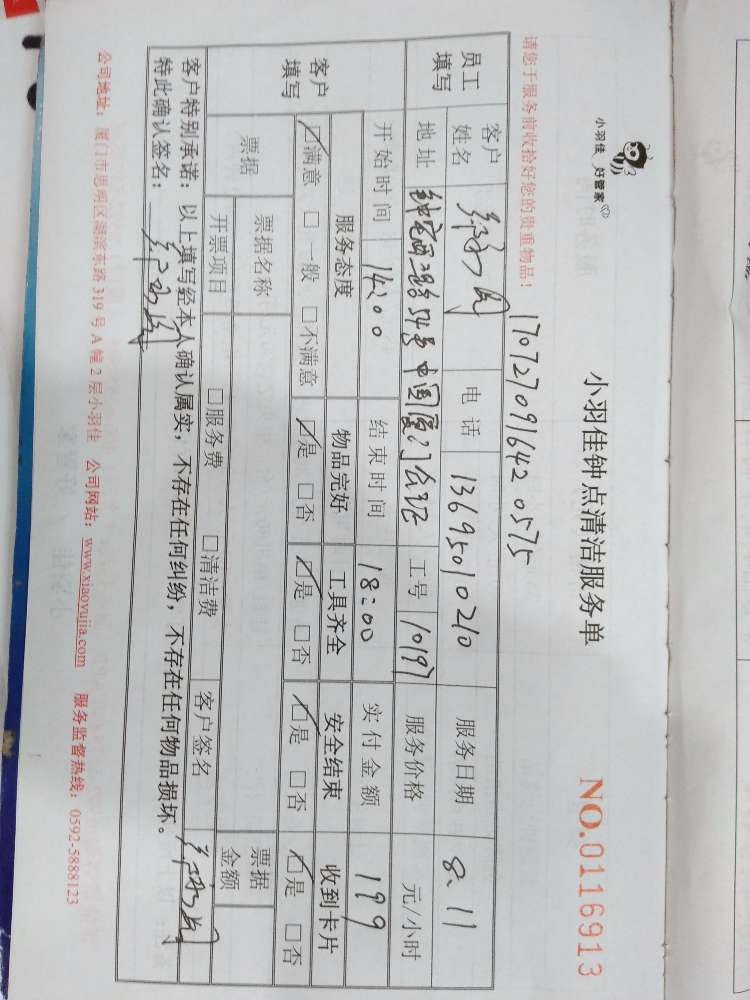 小羽佳 好管家
小羽佳钟点清洁服务单
NO.0116913
请您于服务前收拾好您的贵重物品！
17072709164 20575
员工填写 客户姓名 电话 13695010210 服务日期 8.11
地址 54号中国厦门 工号 10197 服务价格 元/小时
客户填写 开始时间 14:00 结束时间 18:00 实付金额 199
服务态度 物品完好 工具齐全 安全结束 收到卡片
☑满意 □一般 □不满意 ☑是 □否 ☑是 □否 ☑是 □否 ☑是 □否
票据 票据名称 票据金额
开票项目 □服务费 □清洁费 客户签名
客户特别承诺：以上填写经本人确认属实，不存在任何纠纷，不存在任何物品损坏。
特此确认签名：
公司地址：厦门市思明区湖滨东路 319 号 A 幢 2 层小羽佳 公司网站：www.xiaoyujia.com 服务监督热线：0592-5888123